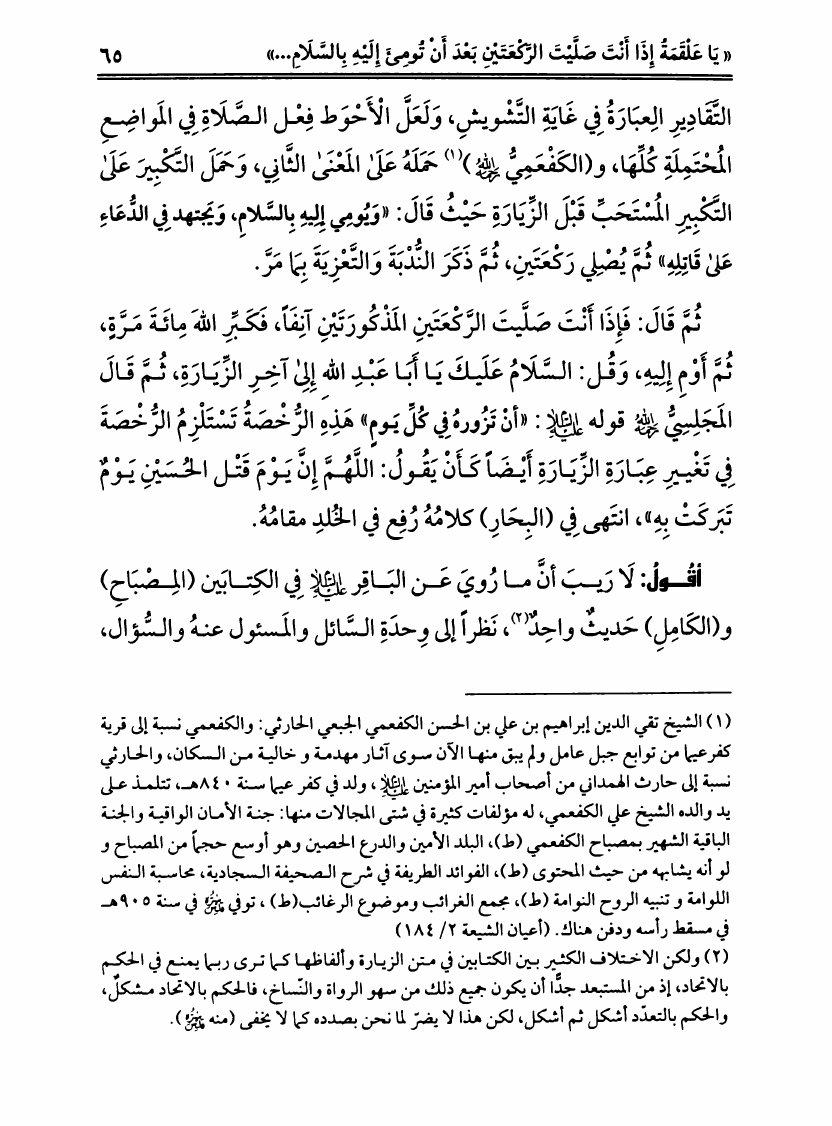 « يَا عَلْقَمَةُ إِذَا أَنْتَ صَلَّيْتَ الرَّكْعَتَيْنِ بَعْدَ أَنْ تُومِئَ إِلَيْهِ بِالسَّلَامِ...» ٦٥
التَّقَادِيرِ العِبَارَةُ فِي غَايَةِ التَّشْوِيشِ، وَلَعَلَّ الْأَحْوَط فِعْل الصَّلَاةِ فِي المَواضِعِ
المُحْتَمِلَةِ كُلِّهَا، و(الكَفْعَمِيُّ ﷼)(١) حَمَلَهُ عَلَىٰ المَعْنَىٰ الثَّانِي، وَحَمَلَ التَّكْبِيرَ عَلَىٰ
التَّكْبِيرِ المُسْتَحَبِّ قَبْلَ الزِّيَارَةِ حَيْثُ قَالَ: «وَيُومِي إِلِيهِ بِالسَّلامِ، وَيَجتهِد فِي الدُّعَاءِ
عَلىٰ قَاتِلِهِ» ثُمَّ يُصْلِي رَكْعَتَينِ، ثُمَّ ذَكَرَ النُّدْبَةَ وَالتَّعْزِيَةَ بِمَا مَرَّ.
ثُمَّ قَالَ: فَإِذَا أَنْتَ صَلَّيتَ الرَّكْعَتَينِ المَذْكُورَتَيْنِ آنِفَاً، فَكَبِّرِ اللهَ مِائَةَ مَرَّةٍ،
ثُمَّ أَوْمِ إِلِيهِ، وَقُل: السَّلَامُ عَلَيكَ يَا أَبَا عَبْدِ اللهِ إِلىٰ آخِرِ الزِّيَارَةِ، ثُمَّ قَالَ
المَجَلِسِيُّ قوله : «أنْ تَزُورهُ فِي كُلِّ يَومٍ» هَذِهِ الرُّخْصَةُ تَسْتَلْزِمُ الرُّخْصَةَ
فِي تَغْيِيرِ عِبَارَةِ الزِّيَارَةِ أَيْضَاً كَأَنْ يَقُولُ: اللَّهُمَّ إِنَّ يَوْمَ قَتْلِ الحُسَيْنِ يَوْمٌ
تَبَرَكَتْ بِهِ»، انتَهى فِي (البِحَارِ) كلامُهُ رُفِعِ في الخُلدِ مقامُهُ.
أقُــولُ: لَا رَيبَ أنَّ ما رُويَ عَنِ البَاقِرِ فِي الكِتابَين (المِصْبَاحِ)
و(الكَامِلِ) حَديثٌ واحِدٌ(٢)، نَظَراً إلى وِحدَةِ السَّائل والمَسئول عنهُ والسُّؤال،
(١) الشيخ تقي الدين إبراهيم بن علي بن الحسن الكفعمي الجبعي الحارثي: والكفعمي نسبة إلى قرية
كفرعيما من توابع جبل عامل ولم يبق منها الآن سوى آثار مهدمة و خالية من السكان، والحارثي
نسبة إلى حارث الهمداني من أصحاب أمير المؤمنين ، ولد في كفر عيما سنة ٨٤٠هـ، تتلمذ على
يد والده الشيخ علي الكفعمي، له مؤلفات كثيرة في شتى المجالات منها: جنة الأمان الواقية والجنة
الباقية الشهير بمصباح الكفعمي (ط)، البلد الأمين والدرع الحصين وهو أوسع حجماً من المصباح و
لو أنه يشابهه من حيث المحتوى (ط)، الفوائد الطريفة في شرح الصحيفة السجادية، محاسبة النفس
اللوامة و تنبيه الروح النوامة (ط)، مجمع الغرائب وموضوع الرغائب(ط) ، توفي في سنة ٩٠٥هـ
في مسقط رأسه ودفن هناك. (أعيان الشيعة ٢/ ١٨٤)
(٢) ولكن الاختلاف الكثير بين الكتابين في متن الزيارة وألفاظها كما ترى ربما يمنع في الحكم
بالاتحاد، إذ من المستبعد جدًّا أن يكون جميع ذلك من سهو الرواة والنّساخ، فالحكم بالاتحاد مشكلٌ،
والحكم بالتعدّد أشكل ثم أشكل، لكن هذا لا يضرّ لما نحن بصدده كما لا يخفى (منه ).